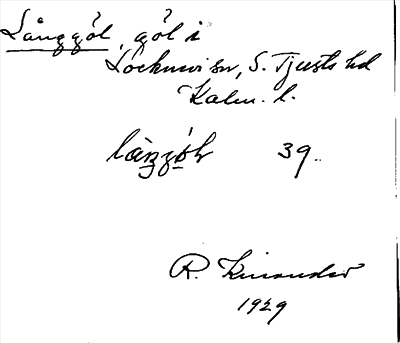 Långgöl, göl i
Locknevi sn, S. Tjusts hd
Kalm. l.
39.
R. Kinander
1929